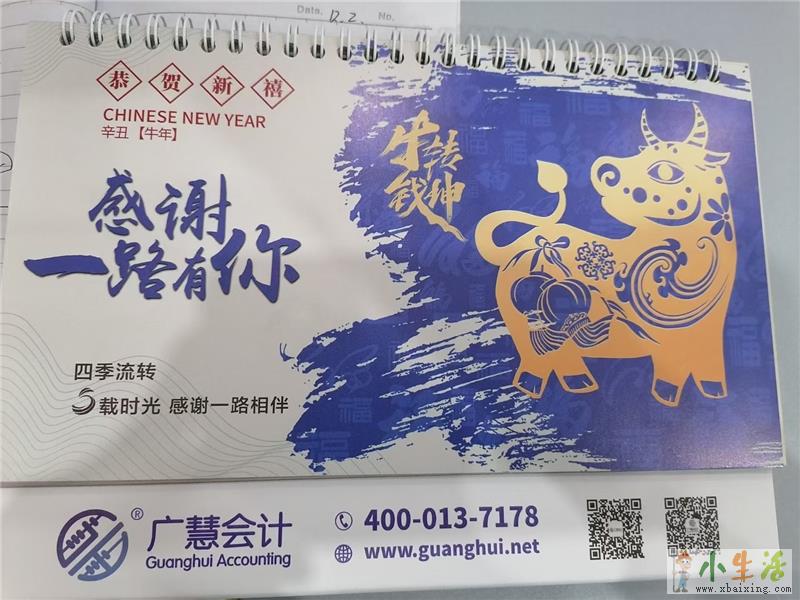 Data. 12.2. No.
恭贺新禧
CHINESE NEW YEAR
辛丑【牛年】
感谢
一路有你
牛转
钱坤
四季流转
5载时光 感谢一路相伴
® 广慧会计
Guanghui Accounting
400-013-7178
www.guanghui.net
小生活
www.xbaixing.com